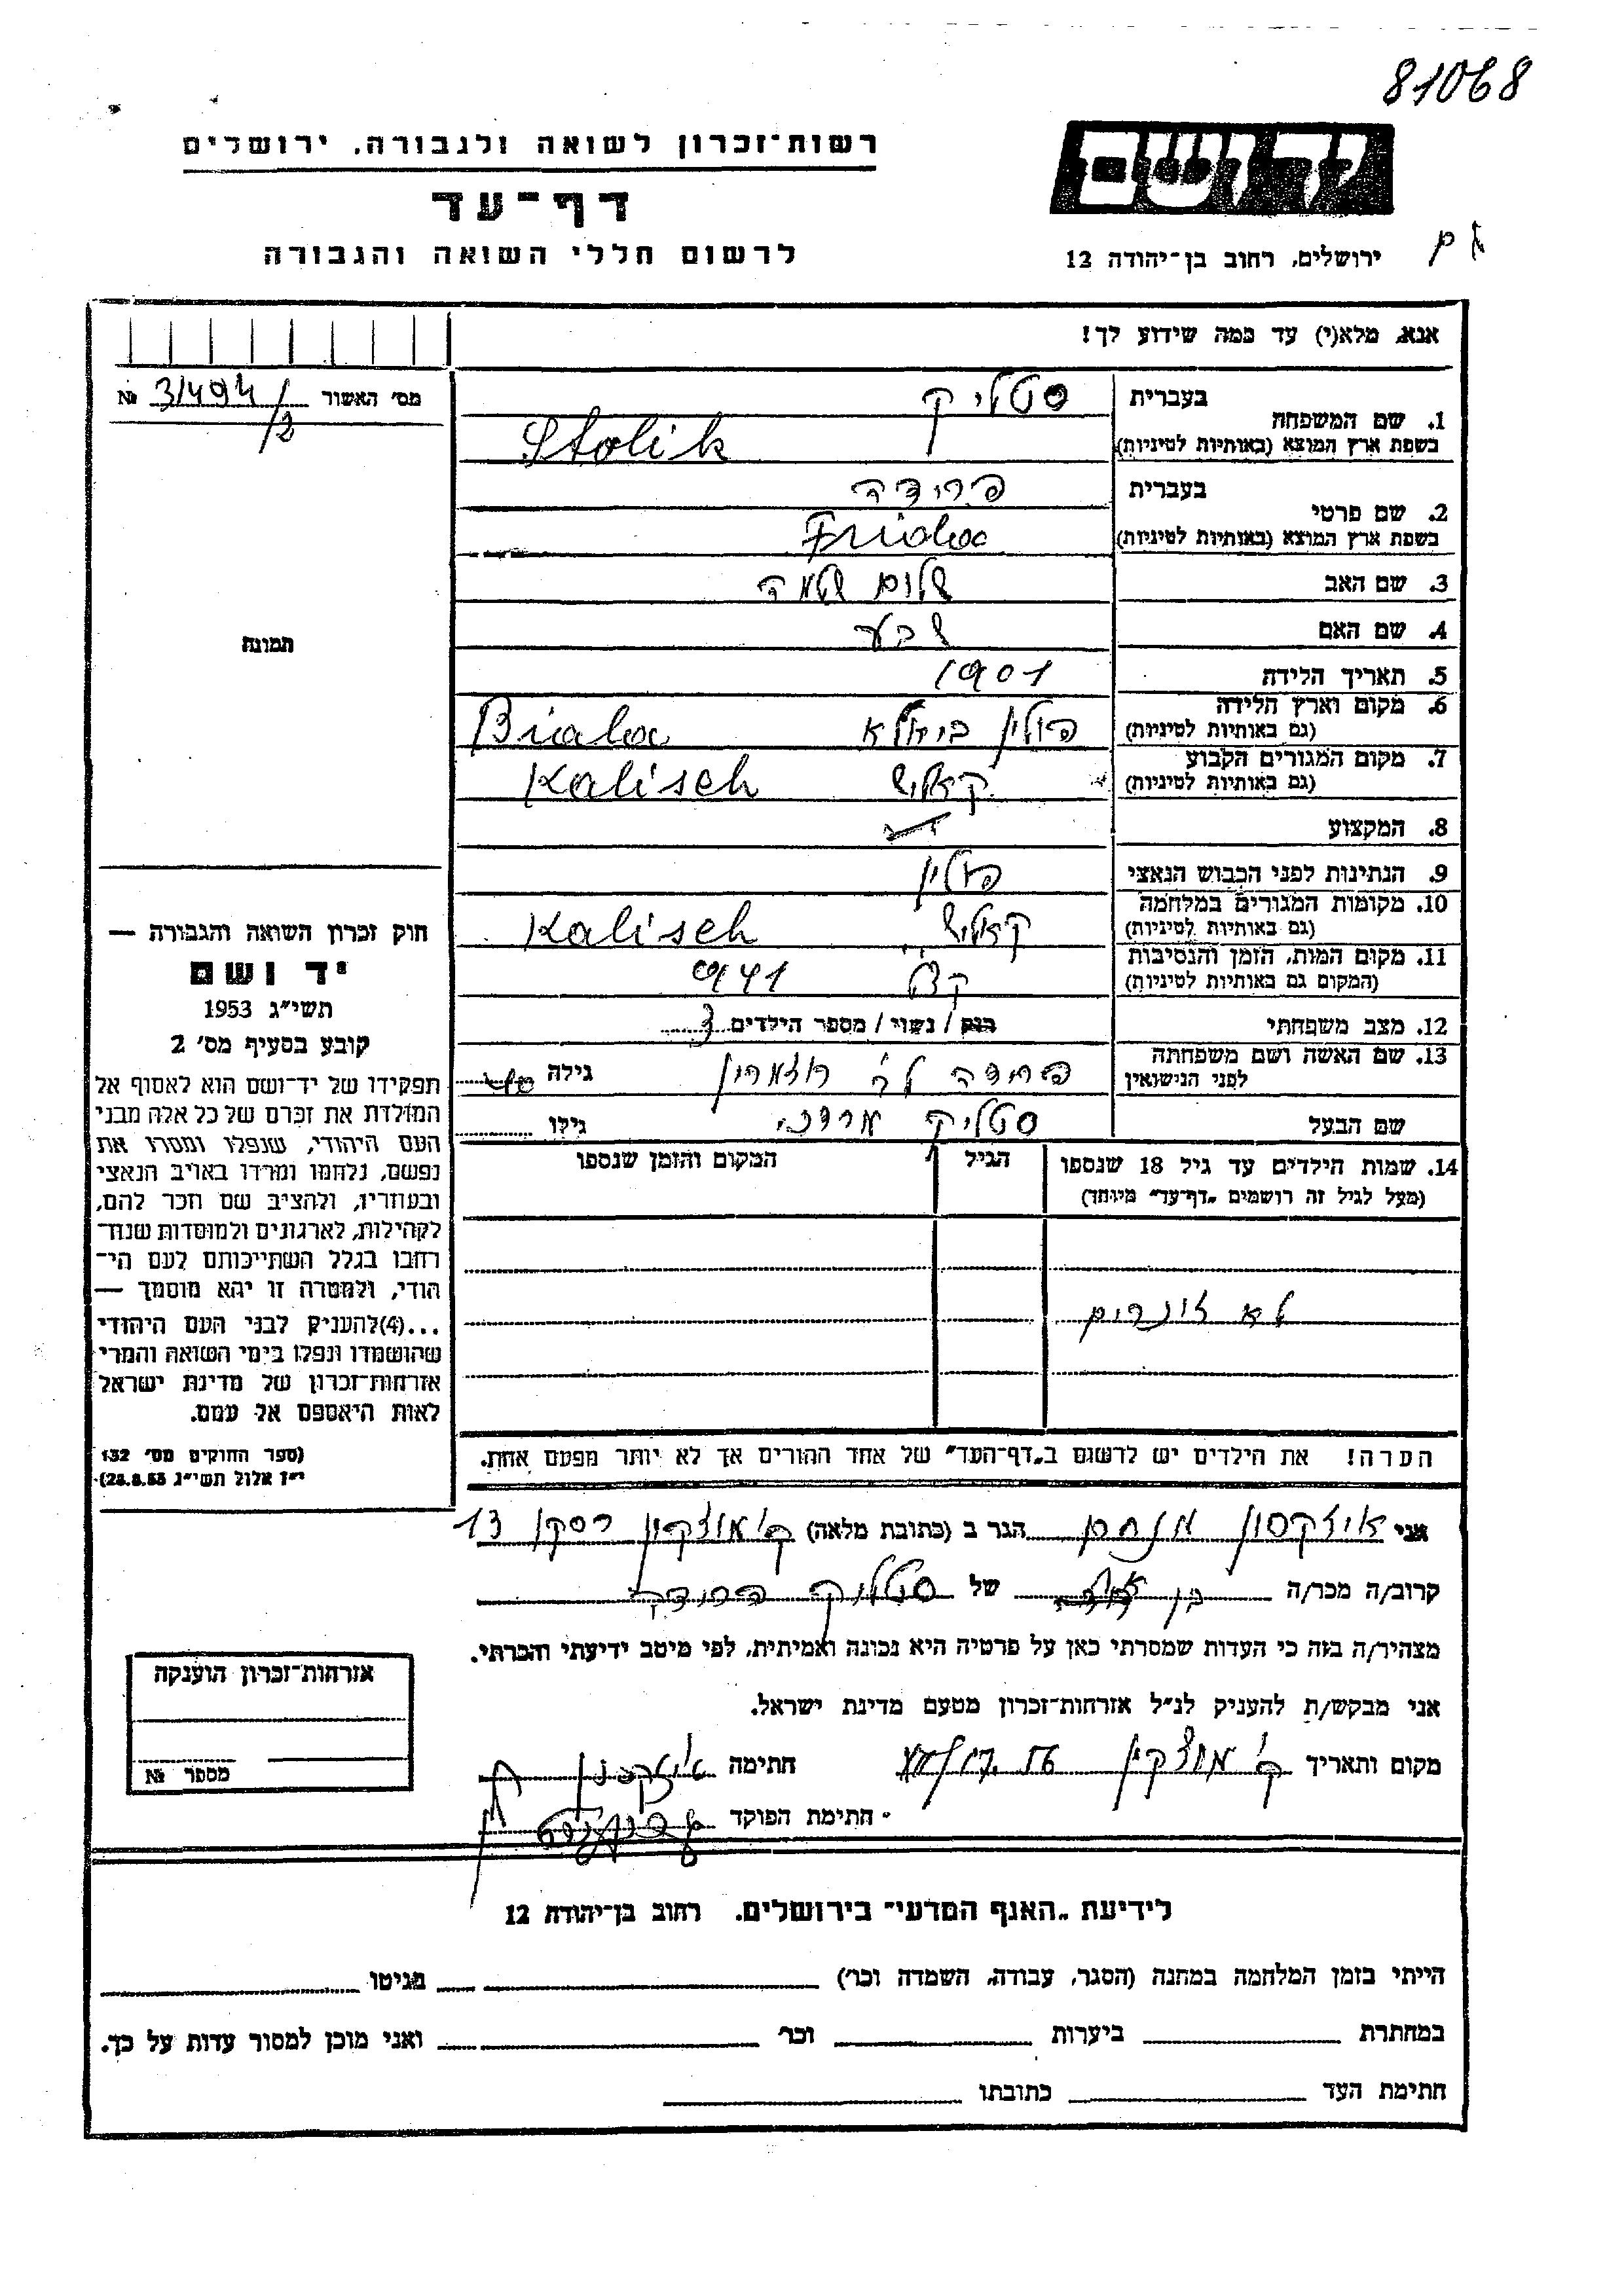 81068
רשות־זכרון לשואה ולגבורה, ירושלים
דף־עד
לרשום חללי השואה והגבורה
יד ושם
ירושלים, רחוב בן־יהודה 12
אנא, מלא(י) עד כמה שידוע לך!
מס׳ האשור 31494/2 №
תמונה
1. שם המשפחה
בעברית סטליק
בשפת ארץ המוצא (באותיות לטיניות) Stolik
2. שם פרטי
בעברית פרידה
בשפת ארץ המוצא (באותיות לטיניות) Frida
3. שם האב שלום
4. שם האם שבע
5. תאריך הלידה 1901
6. מקום וארץ הלידה (גם באותיות לטיניות) פולין ביאלא Biala
7. מקום המגורים הקבוע (גם באותיות לטיניות) קאליש Kalisch
8. המקצוע
9. הנתינות לפני הכבוש הנאצי פולין
10. מקומות המגורים במלחמה (גם באותיות לטיניות) קאליש Kalisch
11. מקום המות, הזמן והנסיבות (המקום גם באותיות לטיניות) 941
12. מצב משפחתי רווק / נשוי / מספר הילדים 3
13. שם האשה ושם משפחתה לפני הנישואין פרידה לב׳ גילה
שם הבעל סטליק מרדכי גילו
14. שמות הילדים עד גיל 18 שנספו (מעל לגיל זה רושמים „דף־עד״ מיוחד) הגיל המקום והזמן שנספו
לא זוכרים
הערה! את הילדים יש לרשום ב„דף־העד״ של אחד ההורים אך לא יותר מפעם אחת.
חוק זכרון השואה והגבורה —
יד ושם
תשי״ג 1953
קובע בסעיף מס׳ 2
תפקידו של יד־ושם הוא לאסוף אל
המולדת את זכרם של כל אלה מבני
העם היהודי, שנפלו ומסרו את
נפשם, נלחמו ומרדו באויב הנאצי
ובעוזריו, ולהציב שם וזכר להם,
לקהילות, לארגונים ולמוסדות שנח־
רבו בגלל השתייכותם לעם הי־
הודי, ולמטרה זו יהא מוסמך —
...(4) להעניק לבני העם היהודי
שהושמדו ונפלו בימי השואה והמרי
אזרחות־זכרון של מדינת ישראל
לאות היאספם אל עמם.
(ספר החוקים מס׳ 132
י״ז אלול תשי״ג 28.8.53)
אני איזקסון מנחם הגר ב (כתובת מלאה) ק׳ מוצקין רסקו 13
קרוב/ה מכר/ה בן של סטליק פרידה
מצהיר/ה בזה כי העדות שמסרתי כאן על פרטיה היא נכונה ואמיתית, לפי מיטב ידיעתי והכרתי.
אני מבקש/ת להעניק לנ״ל אזרחות־זכרון מטעם מדינת ישראל.
מקום ותאריך ק׳ מוצקין חתימה איזקסון
חתימת הפוקד
אזרחות־זכרון הוענקה
מספר №
לידיעת „האגף המדעי״ בירושלים. רחוב בן־יהודה 12
הייתי בזמן המלחמה במחנה (הסגר, עבודה, השמדה וכו׳) בגיטו
במחתרת ביערות וכו׳ ואני מוכן למסור עדות על כך.
חתימת העד כתובתו